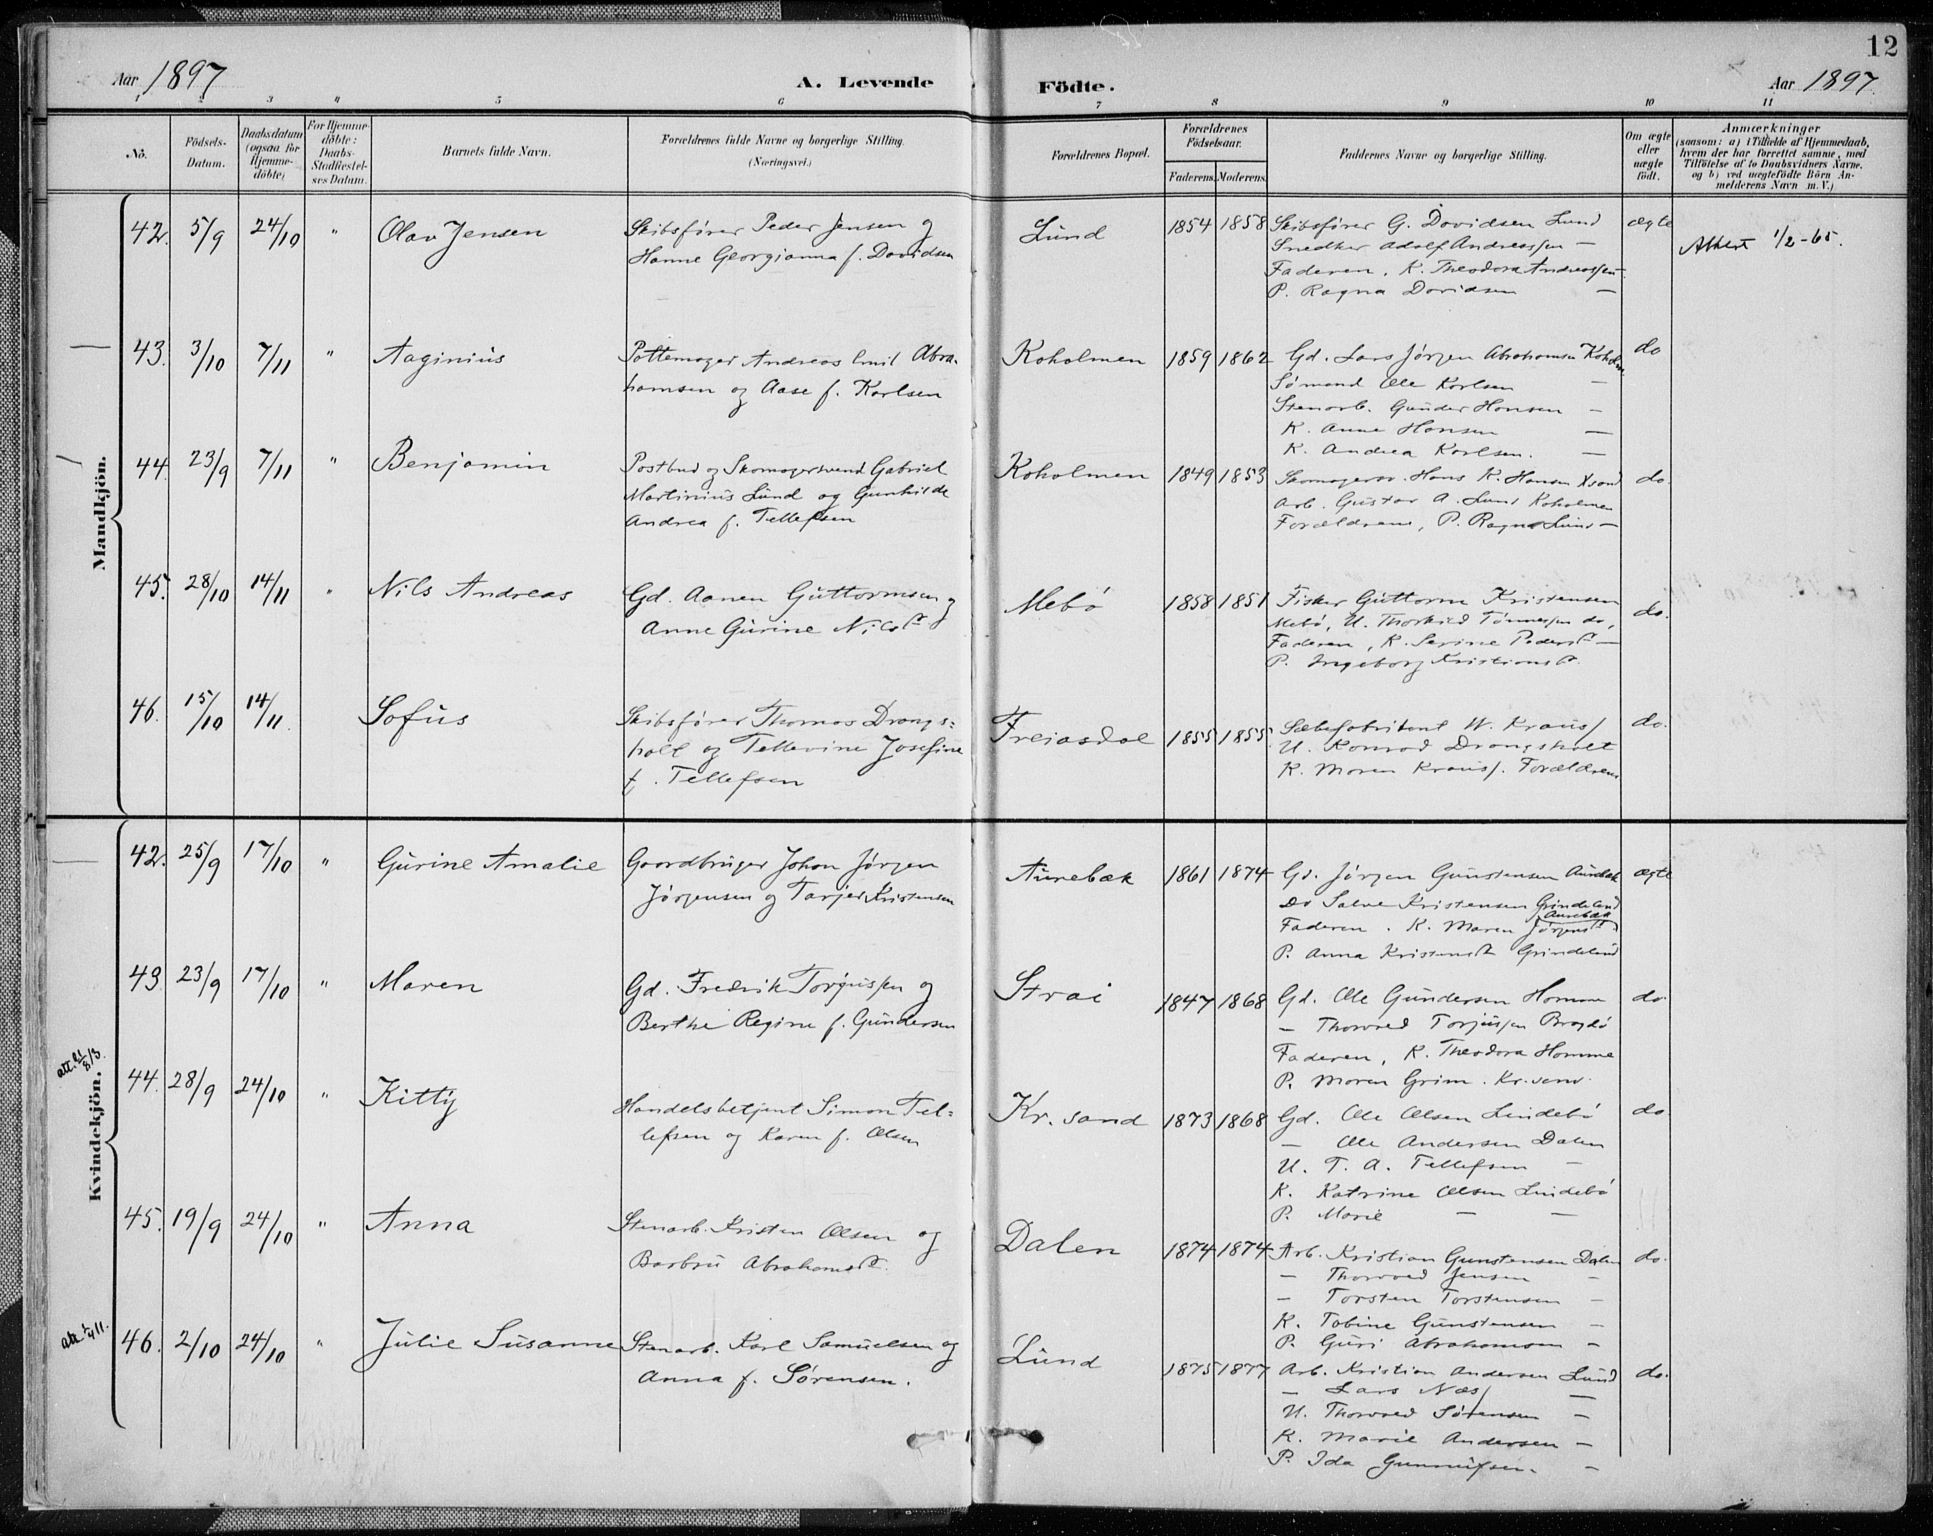 12
Aar 1897
A. Levende
Födte.
Aar 1897.
1 2 3 " 5 6 7 8 9 10 11
No.
Födsels-Datum.
Daabsdatum (ogsaa for Hjemme-döbte)
For Hjemme-döbte: Daabs-Stadfæstel-ses Datum.
Barnets fulde Navn.
Forældrenes fulde Navne og borgerlige Stilling.
(Næringsvei.)
Forældrenes Bopæl.
Forældrenes Födselsaar.
Faderens. Moderens.
Faddernes Navne og borgerlige Stilling.
Om ægte eller uægte födt.
Anmærkninger
(saasom: a) i Tilfælde af Hjemmedaab, hvem der har forrettet samme, med Tilföielse af to Daabsvidners Navne. og b) ved uægtefödte Börn An-melderens Navn m. V.)
Mandkjön.
42. 5/9 24/10 " Olav Jensen
Skibsfører Peder Jensen og
Hanne Georgianna f. Davidsen
Lund 1854 1858
Skibsfører G. Davidsen Lund
Snedker Adolf Andreassen —
Faderen, K. Theodora Andreassen —
P. Ragna Davidsen —
ægte
Attest 1/2-65.
43. 3/10 7/11 " Aaginius
Pottemager Andreas Emil Abra-
hamsen og Aase f. Karlsen
Koholmen 1859 1862
Gd. Lars Jørgen Abrahamsen Koholm
Sømand Ole Karlsen —
Stenarb. Gunder Hansen —
K. Anne Hansen —
K. Andrea Karlsen. —
do
44. 23/9 7/11 " Benjamin
Postbud og Skomagersvend Gabriel
Martinius Lund og Gunhilde
Andrea f. Tellefsen
Koholmen 1849 1853
Skomagersv. Hans K. Hansen Xsand
Arb. Gustav A. Lund Koholmen
Forældrene, P. Ragna Lund —
do.
45. 28/10 14/11 " Nils Andreas
Gd. Aanen Guttormsen og
Anne Gurine Nilsd.
Mebø 1858 1851
Fisker Guttorm Kristensen
Mebø, U. Thorkild Tønnessen do,
Faderen, K. Serine Pedersd. —
P. Ingeborg Kristiansd.
do.
46. 15/10 14/11. Sofus
Skibsfører Thomas Drangs=
holt og Tellevine Josefine
f. Tellefsen
Freiasdal 1855 1855
Sæbefabrikant W. Krauss
U. Konrad Drangsholt
K. Maren Krauss. Forældrene
do.
Kvindekjön.
42. 25/9 17/10 " Gurine Amalie
Gaardbruger Johan Jørgen
Jørgensen og Tarjer Kristensen
Aurebæk 1861 1874
Gd. Jørgen Gunstensen Aurebæk
Do Salve Kristensen Grindeland
Faderen. K. Maren Jørgensd. Aurebæk
P. Anna Kristensd. Grindeland
ægte
43 23/9 17/10 " Maren
Gd. Fredrik Torjussen og
Berthe Regine f. Gundersen
Strai 1847 1868
Gd. Ole Gundersen Homme
— Thorvald Torjussen
Faderen, K. Theodora Homme
P. Maren Grim. Kr.sand.
do.
att. 21/8 13.
44. 28/9 24/10 " Kitty
Handelsbetjent Simon Tel=
lefsen og Karen f. Olsen
Kr. sand 1873 1868
Gd. Ole Olsen Lindebø
— Ole Andersen Dalen
U. T. A. Tellefsen —
K. Katrine Olsen Lindebø
P. Marie — —
do.
45. 19/9 24/10 " Anna
Stenarb. Kristen Olsen og
Barbru Abrahamsd.
Dalen 1874 1874
Arb. Kristian Gunstensen Dalen
— Thorvald Jensen —
— Torsten Torstensen —
K. Tobine Gunstensen —
P. Guri Abrahamsen —
do.
46. 2/10 24/10 " Julie Susanne
Stenarb. Karl Samuelsen og
Anna f. Sørensen.
Lund 1875 1877
Arb. Kristian Andersen Lund
— Lars Næss —
U. Thorvald Sørensen —
K. Marie Andersen —
P. Ida Gunnufsen. —
do.